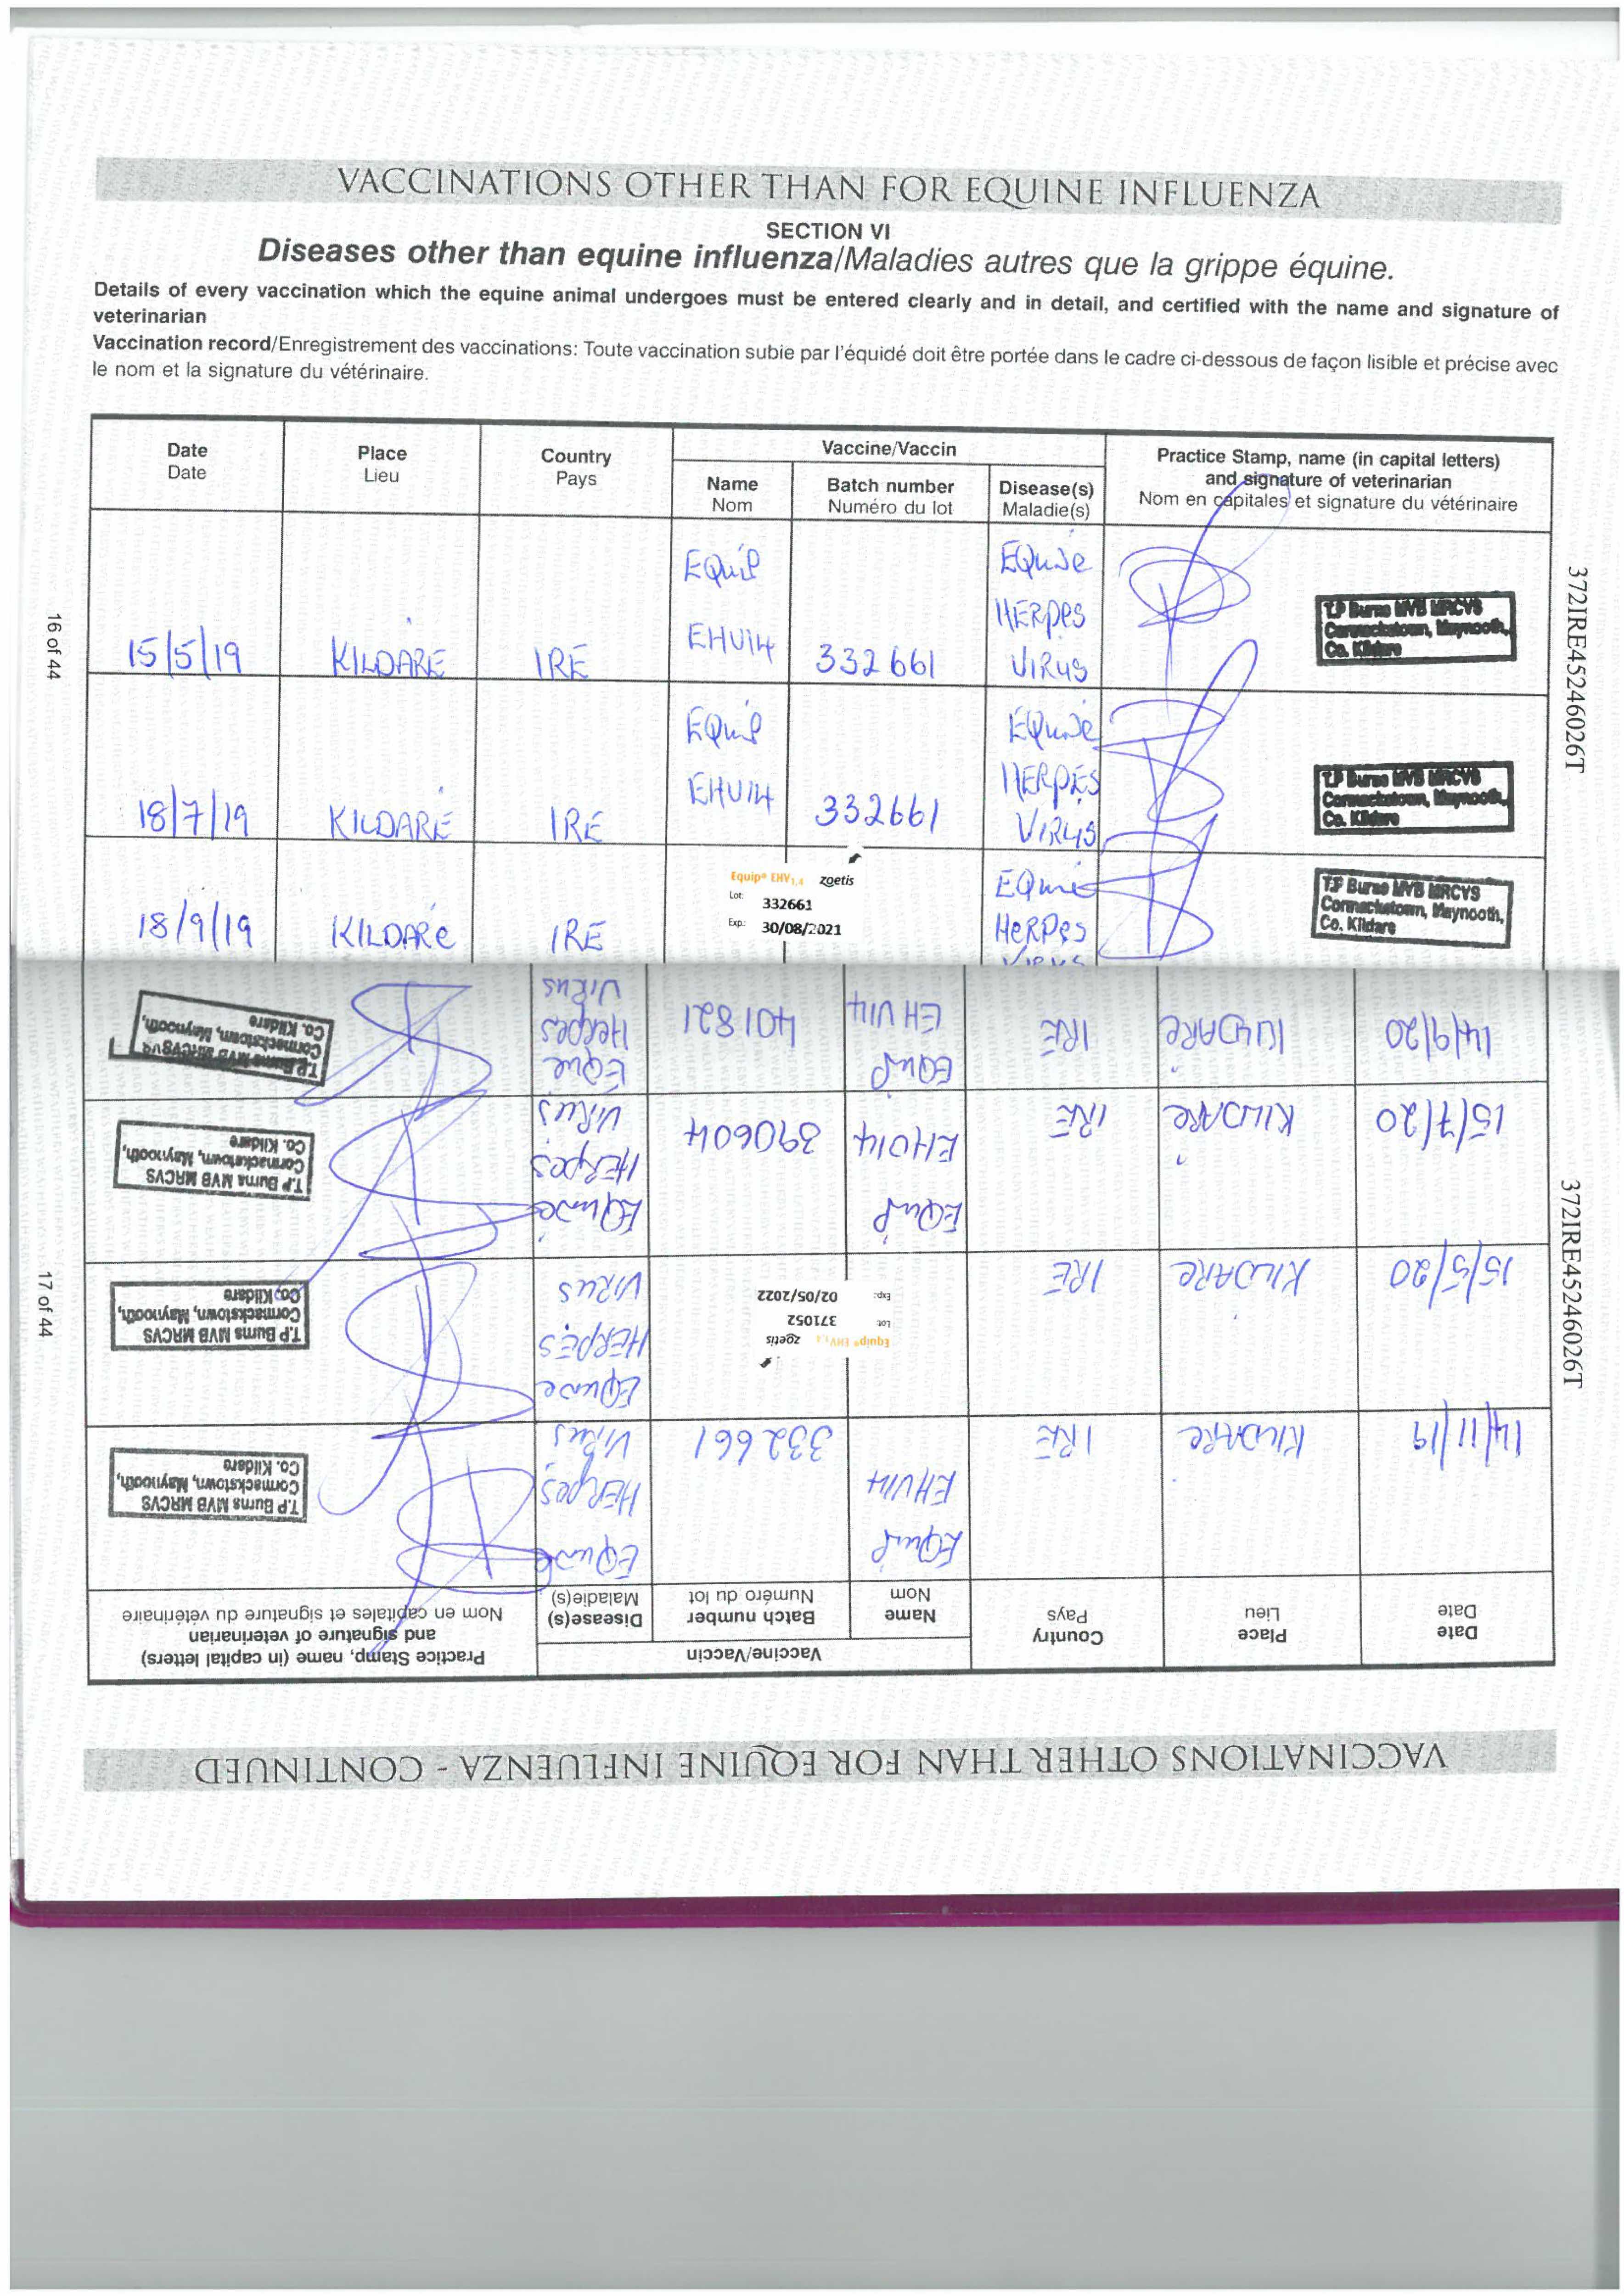 VACCINATIONS OTHER THAN FOR EQUINE INFLUENZA
SECTION VI
Diseases other than equine influenza/Maladies autres que la grippe équine.
Details of every vaccination which the equine animal undergoes must be entered clearly and in detail, and certified with the name and signature of
veterinarian
Vaccination record/Enregistrement des vaccinations: Toute vaccination subie par l'équidé doit être portée dans le cadre ci-dessous de façon lisible et précise avec
le nom et la signature du vétérinaire.
Date
Date
Place
Lieu
Country
Pays
Vaccine/Vaccin
Name
Nom
Batch number
Numéro du lot
Disease(s)
Maladie(s)
Practice Stamp, name (in capital letters)
and signature of veterinarian
Nom en capitales et signature du vétérinaire
15/5/19 KILDARE IRE
EQuip
EHV14
332661
EQuine
HERpes
VIRus
T.P Burns MVB MRCVS
Cormackstown, Maynooth,
Co. Kildare
18/7/19 KILDARE IRE
EQuip
EHV14
332661
EQuine
HERPES
VIRus
T.P Burns MVB MRCVS
Cormackstown, Maynooth,
Co. Kildare
18/9/19 KILDARe IRE
Equip® EHV1,4 zoetis
Lot: 332661
Exp: 30/08/2021
EQuine
HeRPes
VIRus
T.P Burns MVB MRCVS
Cormackstown, Maynooth,
Co. Kildare
16 of 44
372IRE45246026T
VACCINATIONS OTHER THAN FOR EQUINE INFLUENZA - CONTINUED
Date
Date
Place
Lieu
Country
Pays
Vaccine/Vaccin
Name
Nom
Batch number
Numéro du lot
Disease(s)
Maladie(s)
Practice Stamp, name (in capital letters)
and signature of veterinarian
Nom en capitales et signature du vétérinaire
14/11/19 KILDARe IRE
EQuip
EHV14
332661
EQuine
HERpes
VIRus
T.P Burns MVB MRCVS
Cormackstown, Maynooth,
Co. Kildare
15/5/20 KILDARe IRE
Equip® EHV1,4 zoetis
Lot: 371052
Exp: 02/05/2022
EQuine
HERpes
VIRUS
T.P Burns MVB MRCVS
Cormackstown, Maynooth,
Co. Kildare
15/7/20 KILDARe IRE
EQuip
EHV14
390604
EQuine
HERpes
VIRus
T.P Burns MVB MRCVS
Cormackstown, Maynooth,
Co. Kildare
14/9/20 KILDARe IRE
EQuip
EHV14
401821
EQue
Herpes
VIRus
T.P Burns MVB MRCVS
Cormackstown, Maynooth,
Co. Kildare
17 of 44
372IRE45246026T